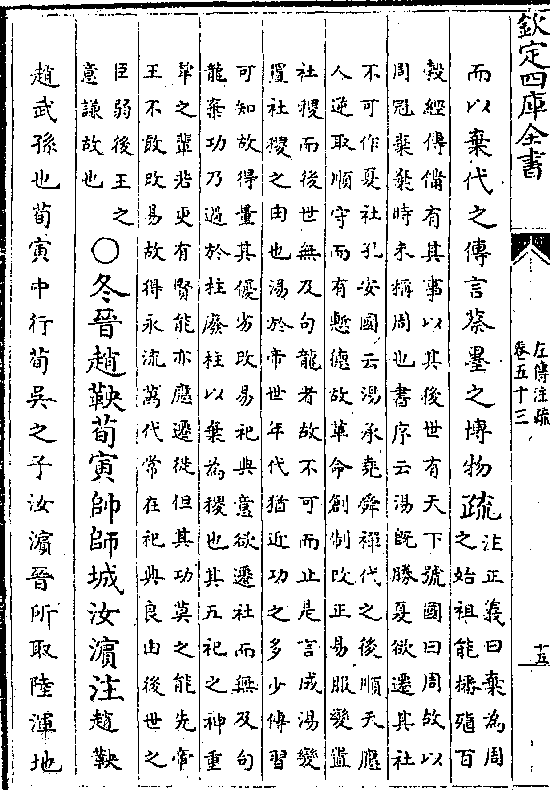 欽定四庫全書
左傳注疏
卷五十三
十五
而以棄代之傳言蔡墨之博物疏
注正義曰棄為周
之始祖能播殖百
穀經傳備有其事以其後世有天下號國曰周故以
周冠棄棄時未稱周也書序云湯既勝夏欲遷其社
不可作夏社孔安國云湯承堯舜禪代之後順天應
人逆取順守而有慙德故革命創制改正易服變置
社稷而後世無及句龍者故不可而止是言成湯變
置社稷之由也湯於帝世年代猶近功之多少傳習
可知故得量其優劣改易祀典意欲遷社而無及句
龍棄功乃過於柱廢柱以棄為稷也其五祀之神重
犂之輩若更有賢能亦應遷徙但其功莫之能先帝
王不敢改易故得永流萬代常在祀典良由後世之
臣弱後王之
意謙故也
○冬晉趙鞅荀寅帥師城汝濱注趙鞅
趙武孫也荀寅中行荀吳之子汝濱晉所取陸渾地